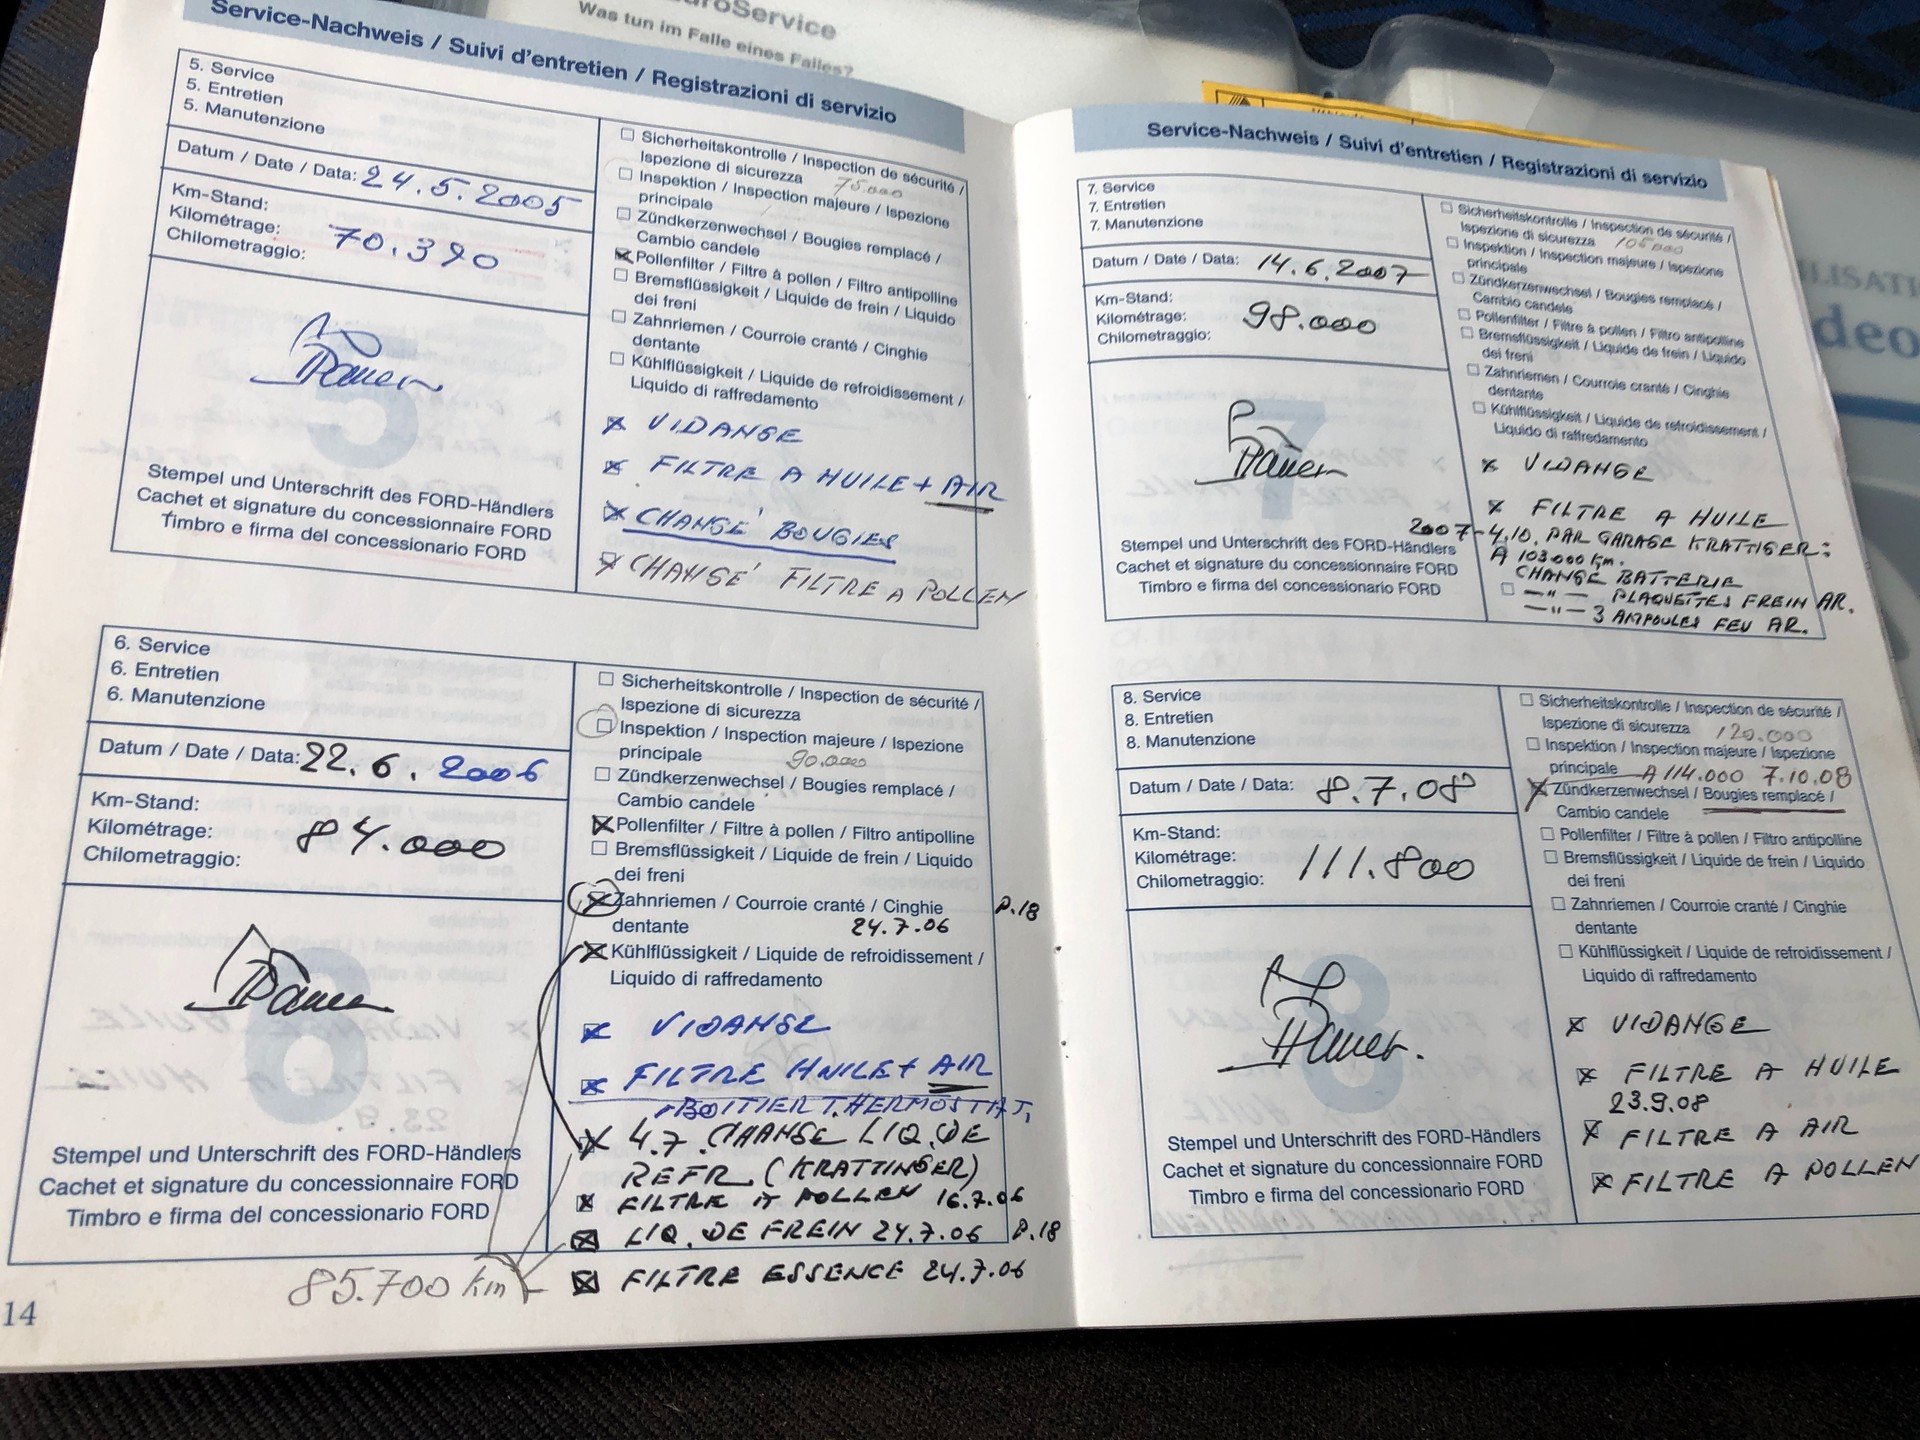 EuroService
Was tun im Falle eines Falles?
Service-Nachweis / Suivi d'entretien / Registrazioni di servizio
5. Service
5. Entretien
5. Manutenzione
Datum / Date / Data: 24.5.2005
Km-Stand:
Kilométrage: 70.390
Chilometraggio:
5
Stempel und Unterschrift des FORD-Händlers
Cachet et signature du concessionnaire FORD
Timbro e firma del concessionario FORD
☐ Sicherheitskontrolle / Inspection de sécurité /
Ispezione di sicurezza 75.000
☐ Inspektion / Inspection majeure / Ispezione
principale
☐ Zündkerzenwechsel / Bougies remplacé /
Cambio candele
☒ Pollenfilter / Filtre à pollen / Filtro antipolline
☐ Bremsflüssigkeit / Liquide de frein / Liquido
dei freni
☐ Zahnriemen / Courroie cranté / Cinghie
dentante
☐ Kühlflüssigkeit / Liquide de refroidissement /
Liquido di raffredamento
☒ VIDANGE
☒ FILTRE A HUILE + AIR
☒ CHANGÉ BOUGIES
☒ CHANGÉ FILTRE A POLLEN
6. Service
6. Entretien
6. Manutenzione
Datum / Date / Data: 22.6.2006
Km-Stand:
Kilométrage: 84.000
Chilometraggio:
6
Stempel und Unterschrift des FORD-Händlers
Cachet et signature du concessionnaire FORD
Timbro e firma del concessionario FORD
☐ Sicherheitskontrolle / Inspection de sécurité /
Ispezione di sicurezza
☐ Inspektion / Inspection majeure / Ispezione
principale 90.000
☐ Zündkerzenwechsel / Bougies remplacé /
Cambio candele
☒ Pollenfilter / Filtre à pollen / Filtro antipolline
☐ Bremsflüssigkeit / Liquide de frein / Liquido
dei freni
☒ Zahnriemen / Courroie cranté / Cinghie P.18
dentante 24.7.06
☒ Kühlflüssigkeit / Liquide de refroidissement /
Liquido di raffredamento
☒ VIDANGE
☒ FILTRE HUILE + AIR
BOITIER THERMOSTAT,
☒ 4.7. CHANGE LIQ. DE
REFR. (KRATTINGER)
☒ FILTRE A POLLEN 16.7.06
☒ LIQ. DE FREIN 24.7.06 P.18
☒ FILTRE ESSENCE 24.7.06
85.700 km
14
Service-Nachweis / Suivi d'entretien / Registrazioni di servizio
7. Service
7. Entretien
7. Manutenzione
Datum / Date / Data: 14.6.2007
Km-Stand:
Kilométrage: 98.000
Chilometraggio:
7
Stempel und Unterschrift des FORD-Händlers
Cachet et signature du concessionnaire FORD
Timbro e firma del concessionario FORD
☐ Sicherheitskontrolle / Inspection de sécurité /
Ispezione di sicurezza 105.000
☐ Inspektion / Inspection majeure / Ispezione
principale
☐ Zündkerzenwechsel / Bougies remplacé /
Cambio candele
☐ Pollenfilter / Filtre à pollen / Filtro antipolline
☐ Bremsflüssigkeit / Liquide de frein / Liquido
dei freni
☐ Zahnriemen / Courroie cranté / Cinghie
dentante
☐ Kühlflüssigkeit / Liquide de refroidissement /
Liquido di raffredamento
☒ VIDANGE
☒ FILTRE A HUILE
2007-4.10. PAR GARAGE KRATTIGER:
A 103000 km.
CHANGÉ BATTERIE
☐ —"— PLAQUETTES FREIN AR.
—"— 3 AMPOULES FEU AR.
8. Service
8. Entretien
8. Manutenzione
Datum / Date / Data: 8.7.08
Km-Stand:
Kilométrage: 111.800
Chilometraggio:
8
Stempel und Unterschrift des FORD-Händlers
Cachet et signature du concessionnaire FORD
Timbro e firma del concessionario FORD
☐ Sicherheitskontrolle / Inspection de sécurité /
Ispezione di sicurezza 120.000
☐ Inspektion / Inspection majeure / Ispezione
principale A 114.000 7.10.08
☒ Zündkerzenwechsel / Bougies remplacé /
Cambio candele
☐ Pollenfilter / Filtre à pollen / Filtro antipolline
☐ Bremsflüssigkeit / Liquide de frein / Liquido
dei freni
☐ Zahnriemen / Courroie cranté / Cinghie
dentante
☐ Kühlflüssigkeit / Liquide de refroidissement /
Liquido di raffredamento
☒ VIDANGE
☒ FILTRE A HUILE
23.9.08
☒ FILTRE A AIR
☒ FILTRE A POLLEN